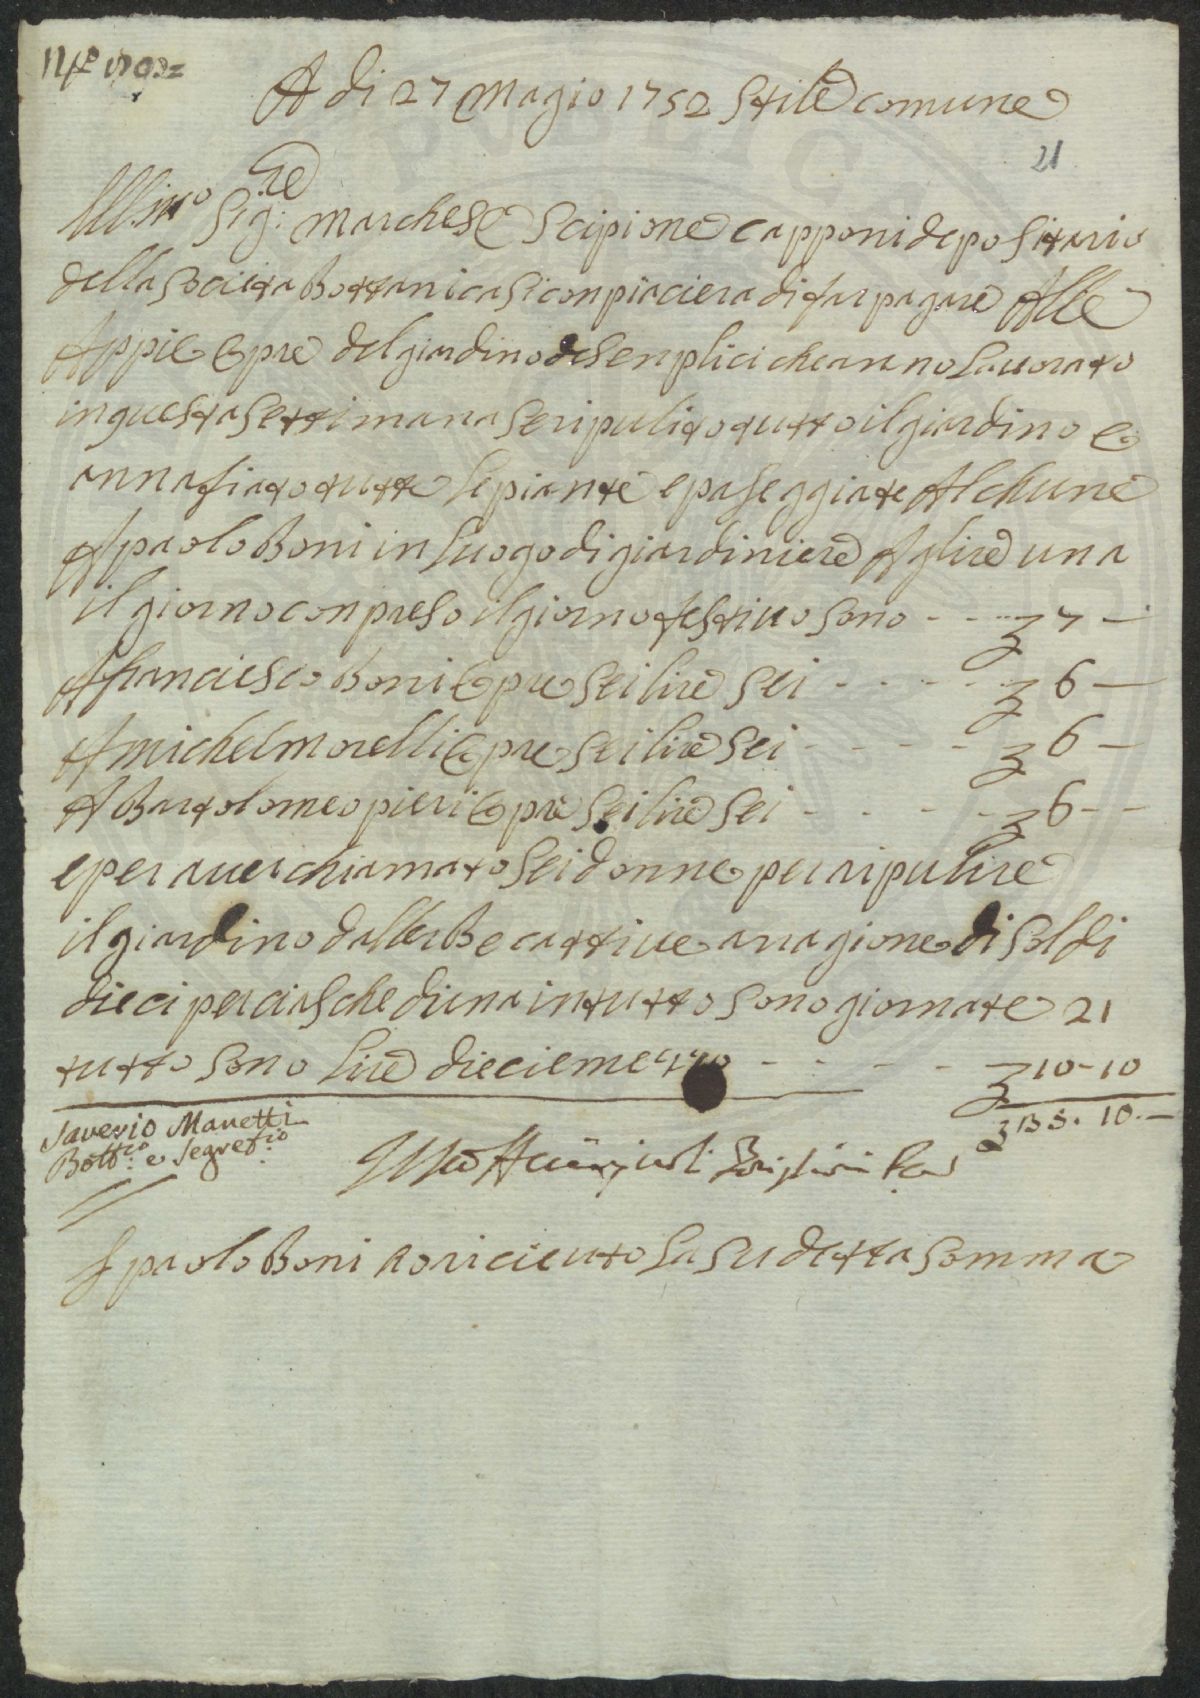 A di 27 Magio 1752 Stile comune
21
Ill.mo Sig.re Marchese Scipione Capponi depositario
della Societa Bottanica si conpiaciera di far pagare Alle
Appie Opre del giardino de Senplici che anno Lauorato
in questa Settimana Se ripulito tutto il giardino e
annafiato tutte le piante e paseggiate Alchune
A paolo Boni in Luogo di giardiniere A lire una
il giorno conpreso il giorno festiuo sono - - - 7 -
A franciesco Boni Opre Sei lire Sei - - - - 6 -
A michel morelli Opre Sei lire Sei - - - - 6 -
A Bartolomeo pieri Opre Sei lire Sei - - - - 6 - -
e per auer chiamato Sei donne per ripulire
il giardino dallerbe cattiue a ragione di Soldi
dieci per ciascheduna in tutto sono giornate 21
tutto sono Lire dieci e mezzo - - - - 10-10
35. 10. -
Saverio Manetti
Bott.co e Segret.rio
I paolo Boni o riceuto La Sudetta Somma